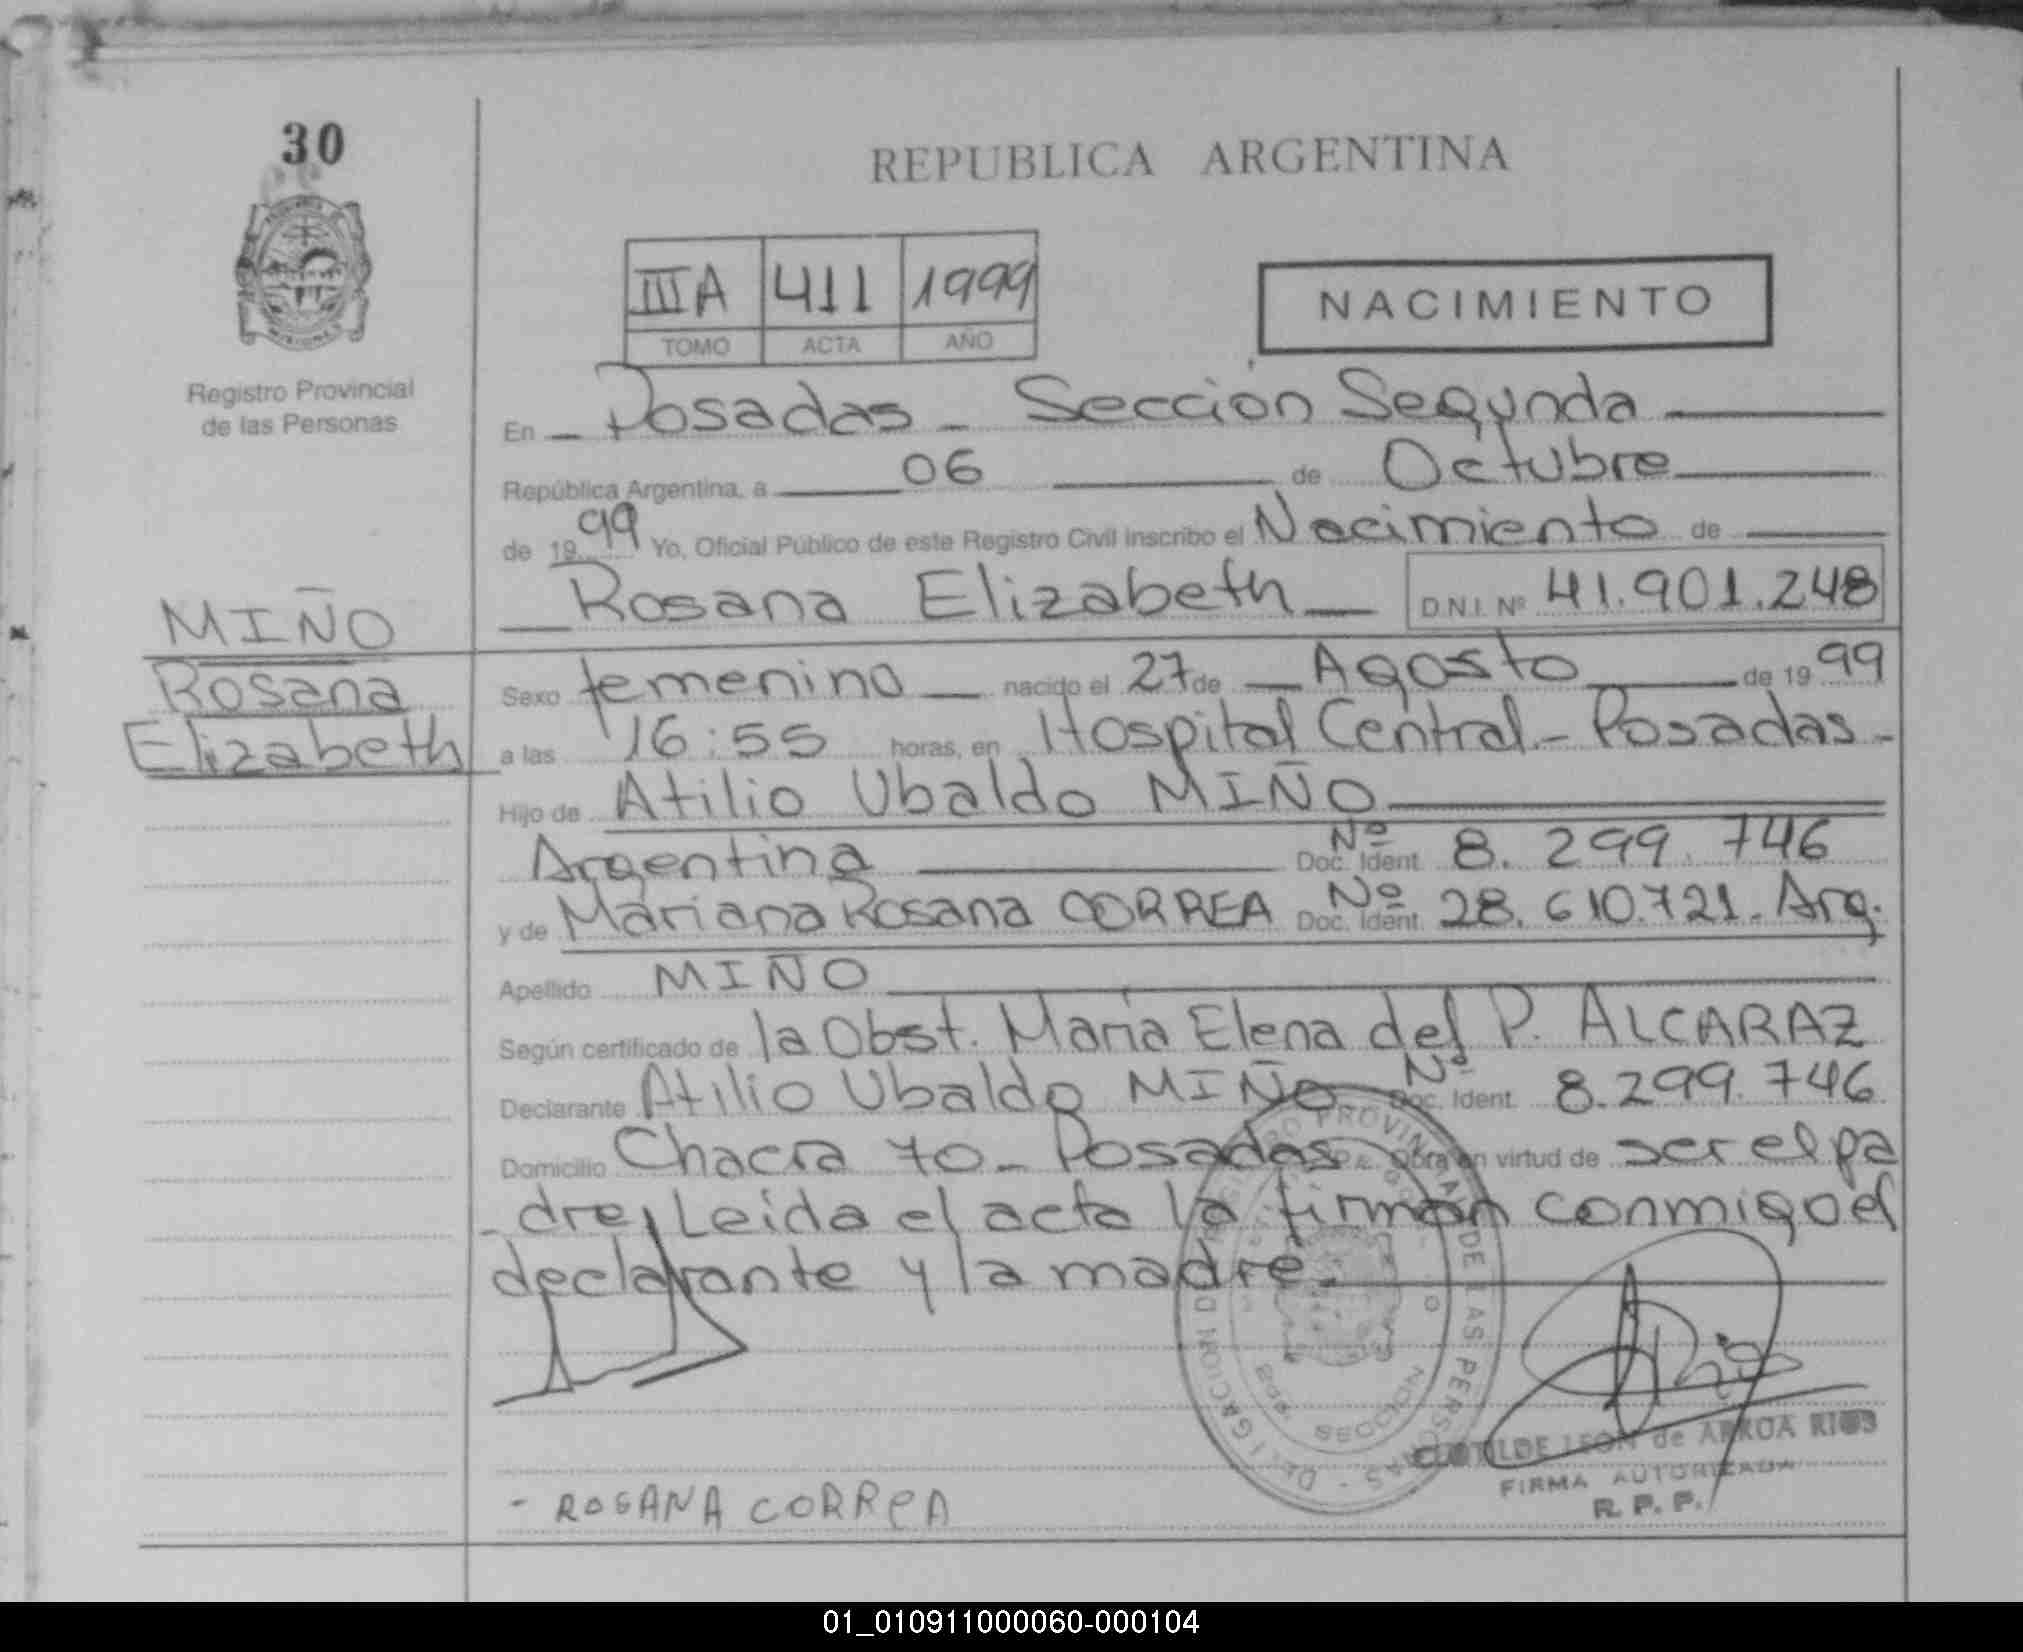 30
REPUBLICA ARGENTINA
IIIA 411 1999
TOMO ACTA AÑO
NACIMIENTO
Registro Provincial
de las Personas
En Posadas - Sección Segunda
República Argentina, a 06 de Octubre
de 1999 Yo, Oficial Público de este Registro Civil inscribo el Nacimiento de
Rosana Elizabeth D.N.I. Nº 41.901.248
MIÑO
Rosana
Elizabeth
Sexo femenino nacido el 27 de Agosto de 1999
a las 16:55 horas, en Hospital Central - Posadas -
Hijo de Atilio Ubaldo MIÑO
Argentina Doc. Ident. Nº 8.299.746
y de Mariana Rosana CORREA Doc. Ident. Nº 28.610.721. Arg.
Apellido MIÑO
Según certificado de la Obst. María Elena del P. ALCARAZ
Declarante Atilio Ubaldo MIÑO Doc. Ident. Nº 8.299.746
Domicilio Chacra 70 - Posadas Obra en virtud de ser el pa
-dre, Leída el acta la firman conmigo el
declarante y la madre.
REGISTRO PROVINCIAL DE LAS PERSONAS - DELEGACION
CLOTILDE LEON de ARROA RIOS
FIRMA AUTORIZADA
R. P. P.
- ROSANA CORREA
01_010911000060-000104